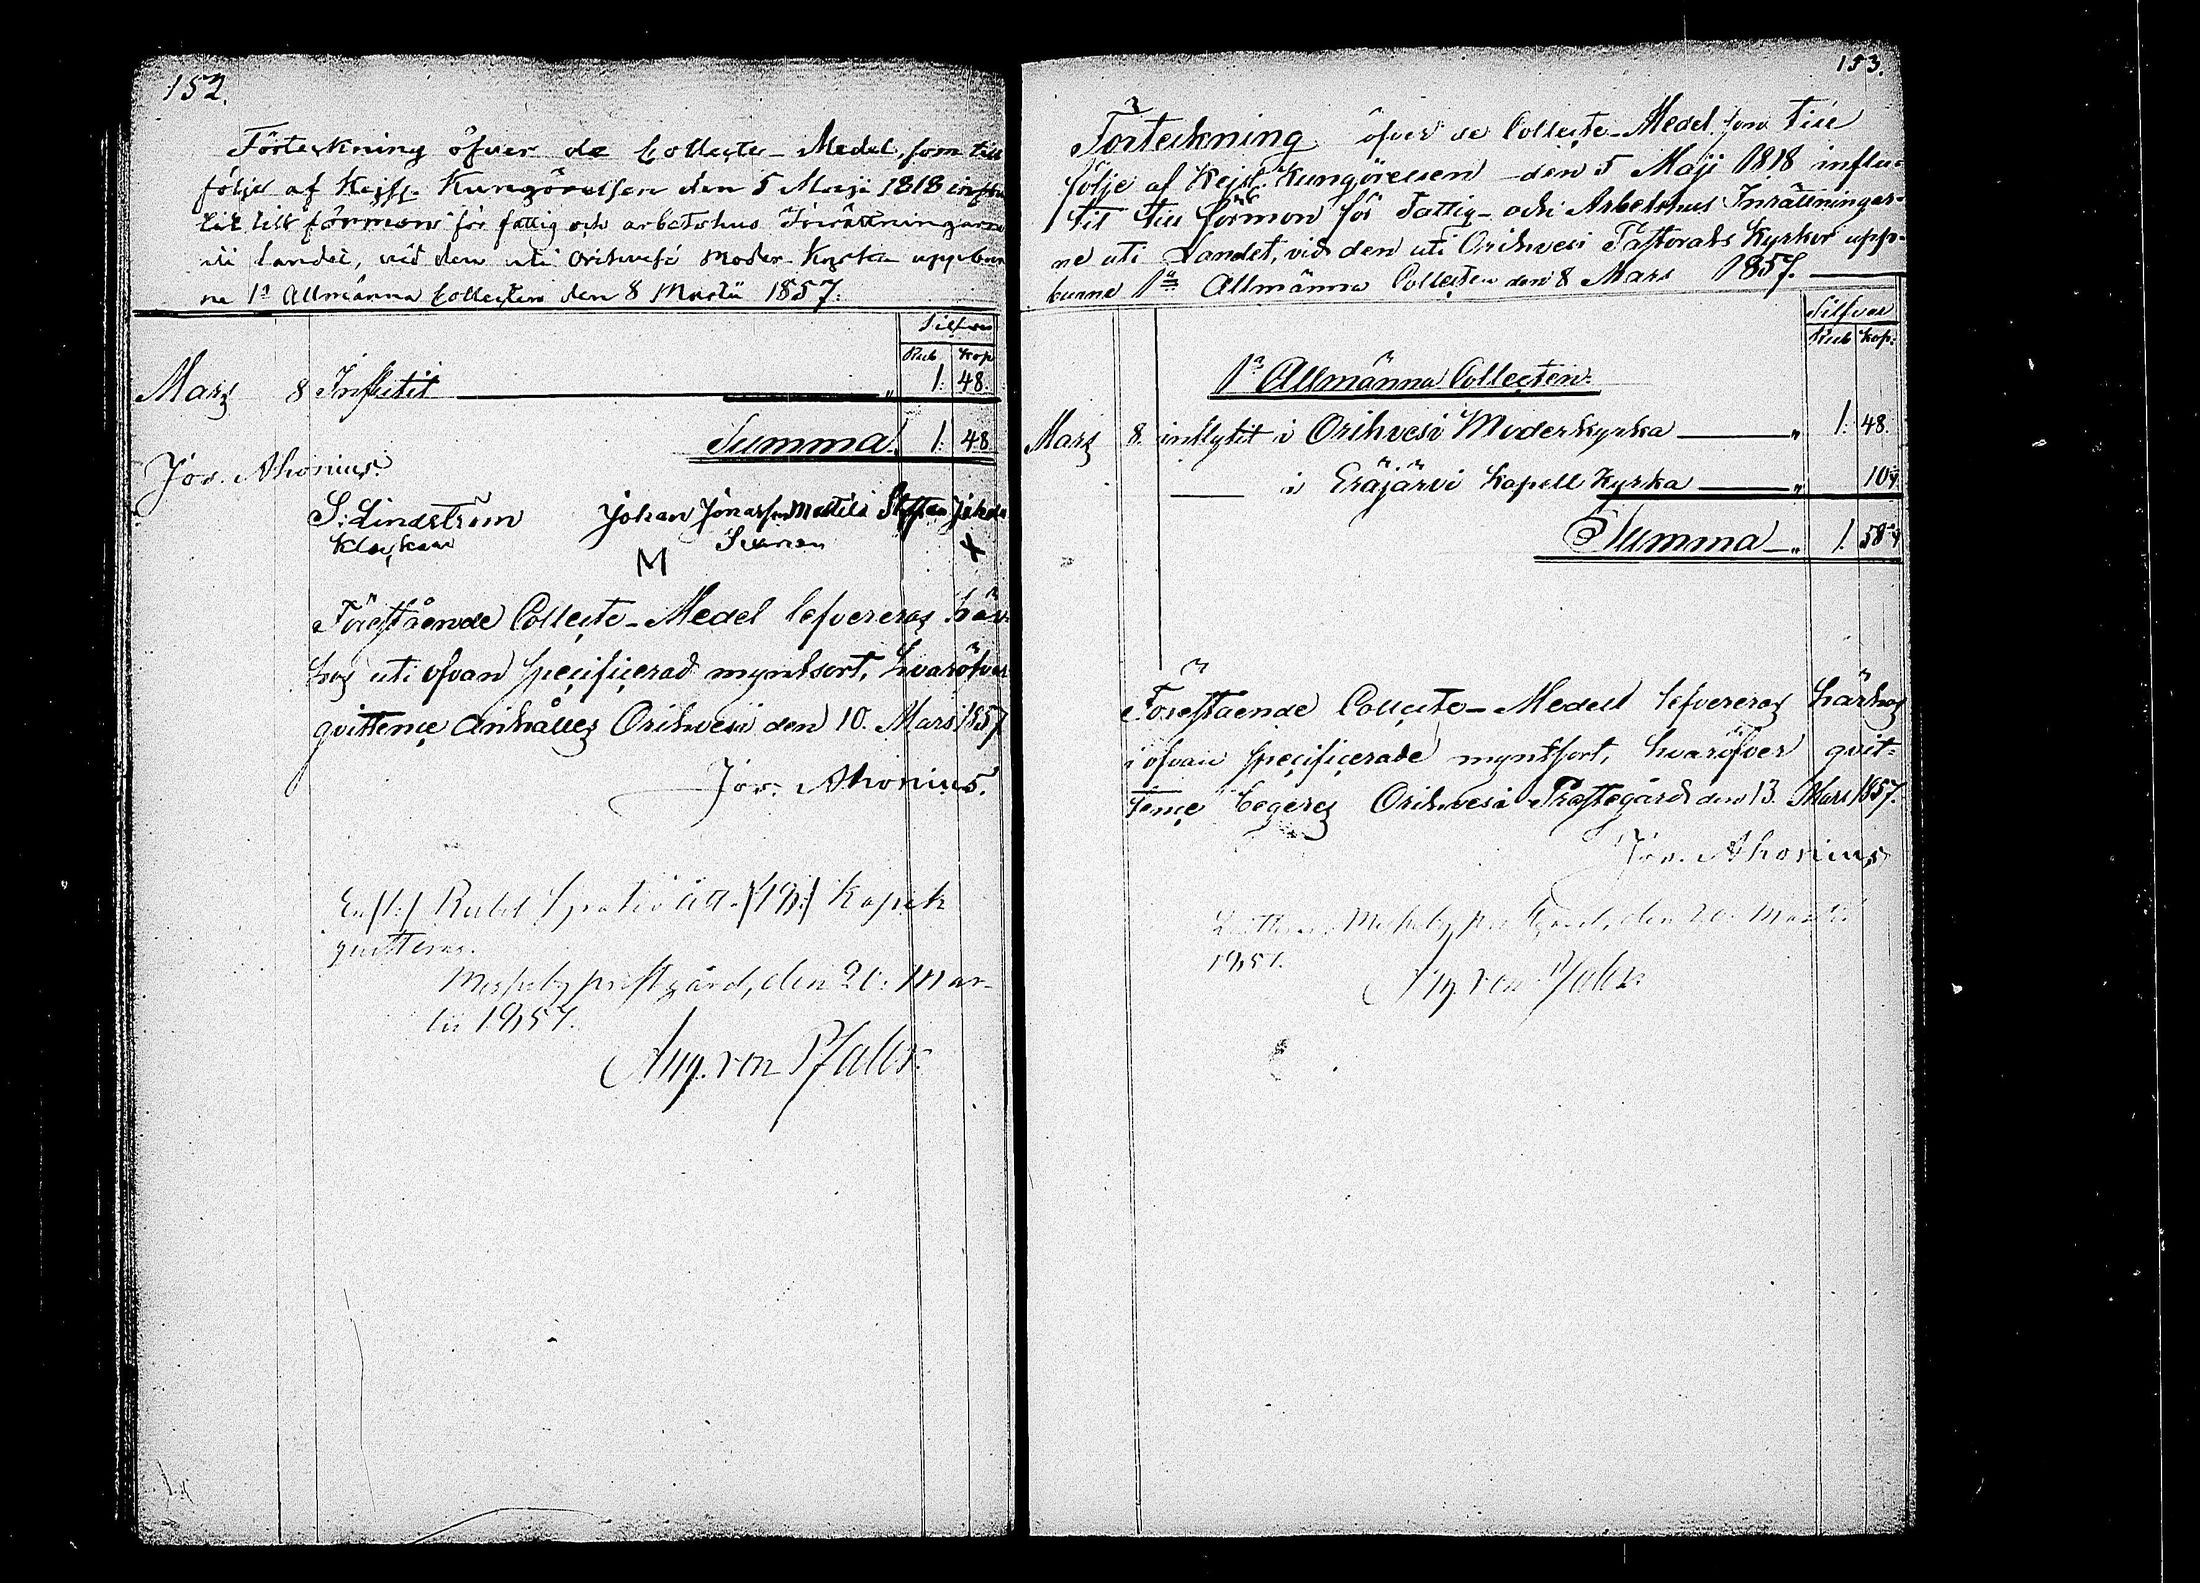 152.
Förteckning öfver de Collecte-Medel, som till
följe af Kejss. Kungörelsen den 5 Maji 1818 influ
tit till förmon för fattig och arbetshus Inrättningarne
uti landet, vid den uti Orihvesi Moder Kyrka uppbur
ne 1a Allmänna Collecten den 8 Martii 1857.
Silfver
Rub. Kop
Mars 8 Influtit 1: 48.
Summa 1: 48
Jos. Ahonius.
S: Lindström Johan Jönasson Mattila Staffan
Klockare
M X
Förestående Collecte-Medel lefvereras här-
hos uti ofvan specificerad myntsort, hvaröfver
qvittence anhålles Orihvesi den 10. Mars 1857
Jos: Ahonius.
En /1:/ Rubel fyratio åtta /48:/ Kopek
qvitteras.
Messuby prestgård, den 20. Mar-
tii 1857.
Aug. von Pfaler.
153.
Förteckning öfver de Collecte-Medel som till
följe af Kejs. Kungörelsen den 5 Maji 1818 influ-
tit till förmon för Fattig- och Arbetshus Inrättningar-
ne uti Landet, vid den uti Orihvesi Pastorats Kyrkor upp-
burne 1a Allmänna Collecten den 8 Mars 1857.
Silfver
Rub Kop.
1a Allmänna Collecten.
Mars 8. inflytit i Orihvesi Moderkyrka 1: 48.
i Eräjärvi Kapell Kyrka 10
Summa 1. 58
Förestående Collecte-Medell lefvereras härhos
i ofvan specificerade myntsort, hvaröfver qvit-
tence begeres Orihvesi Prestegård den 13. Mars 1857.
Jos. Ahonius
Qvitteras Messuby prestgård, den 20. Martii
1857.
Aug. von Pfaler